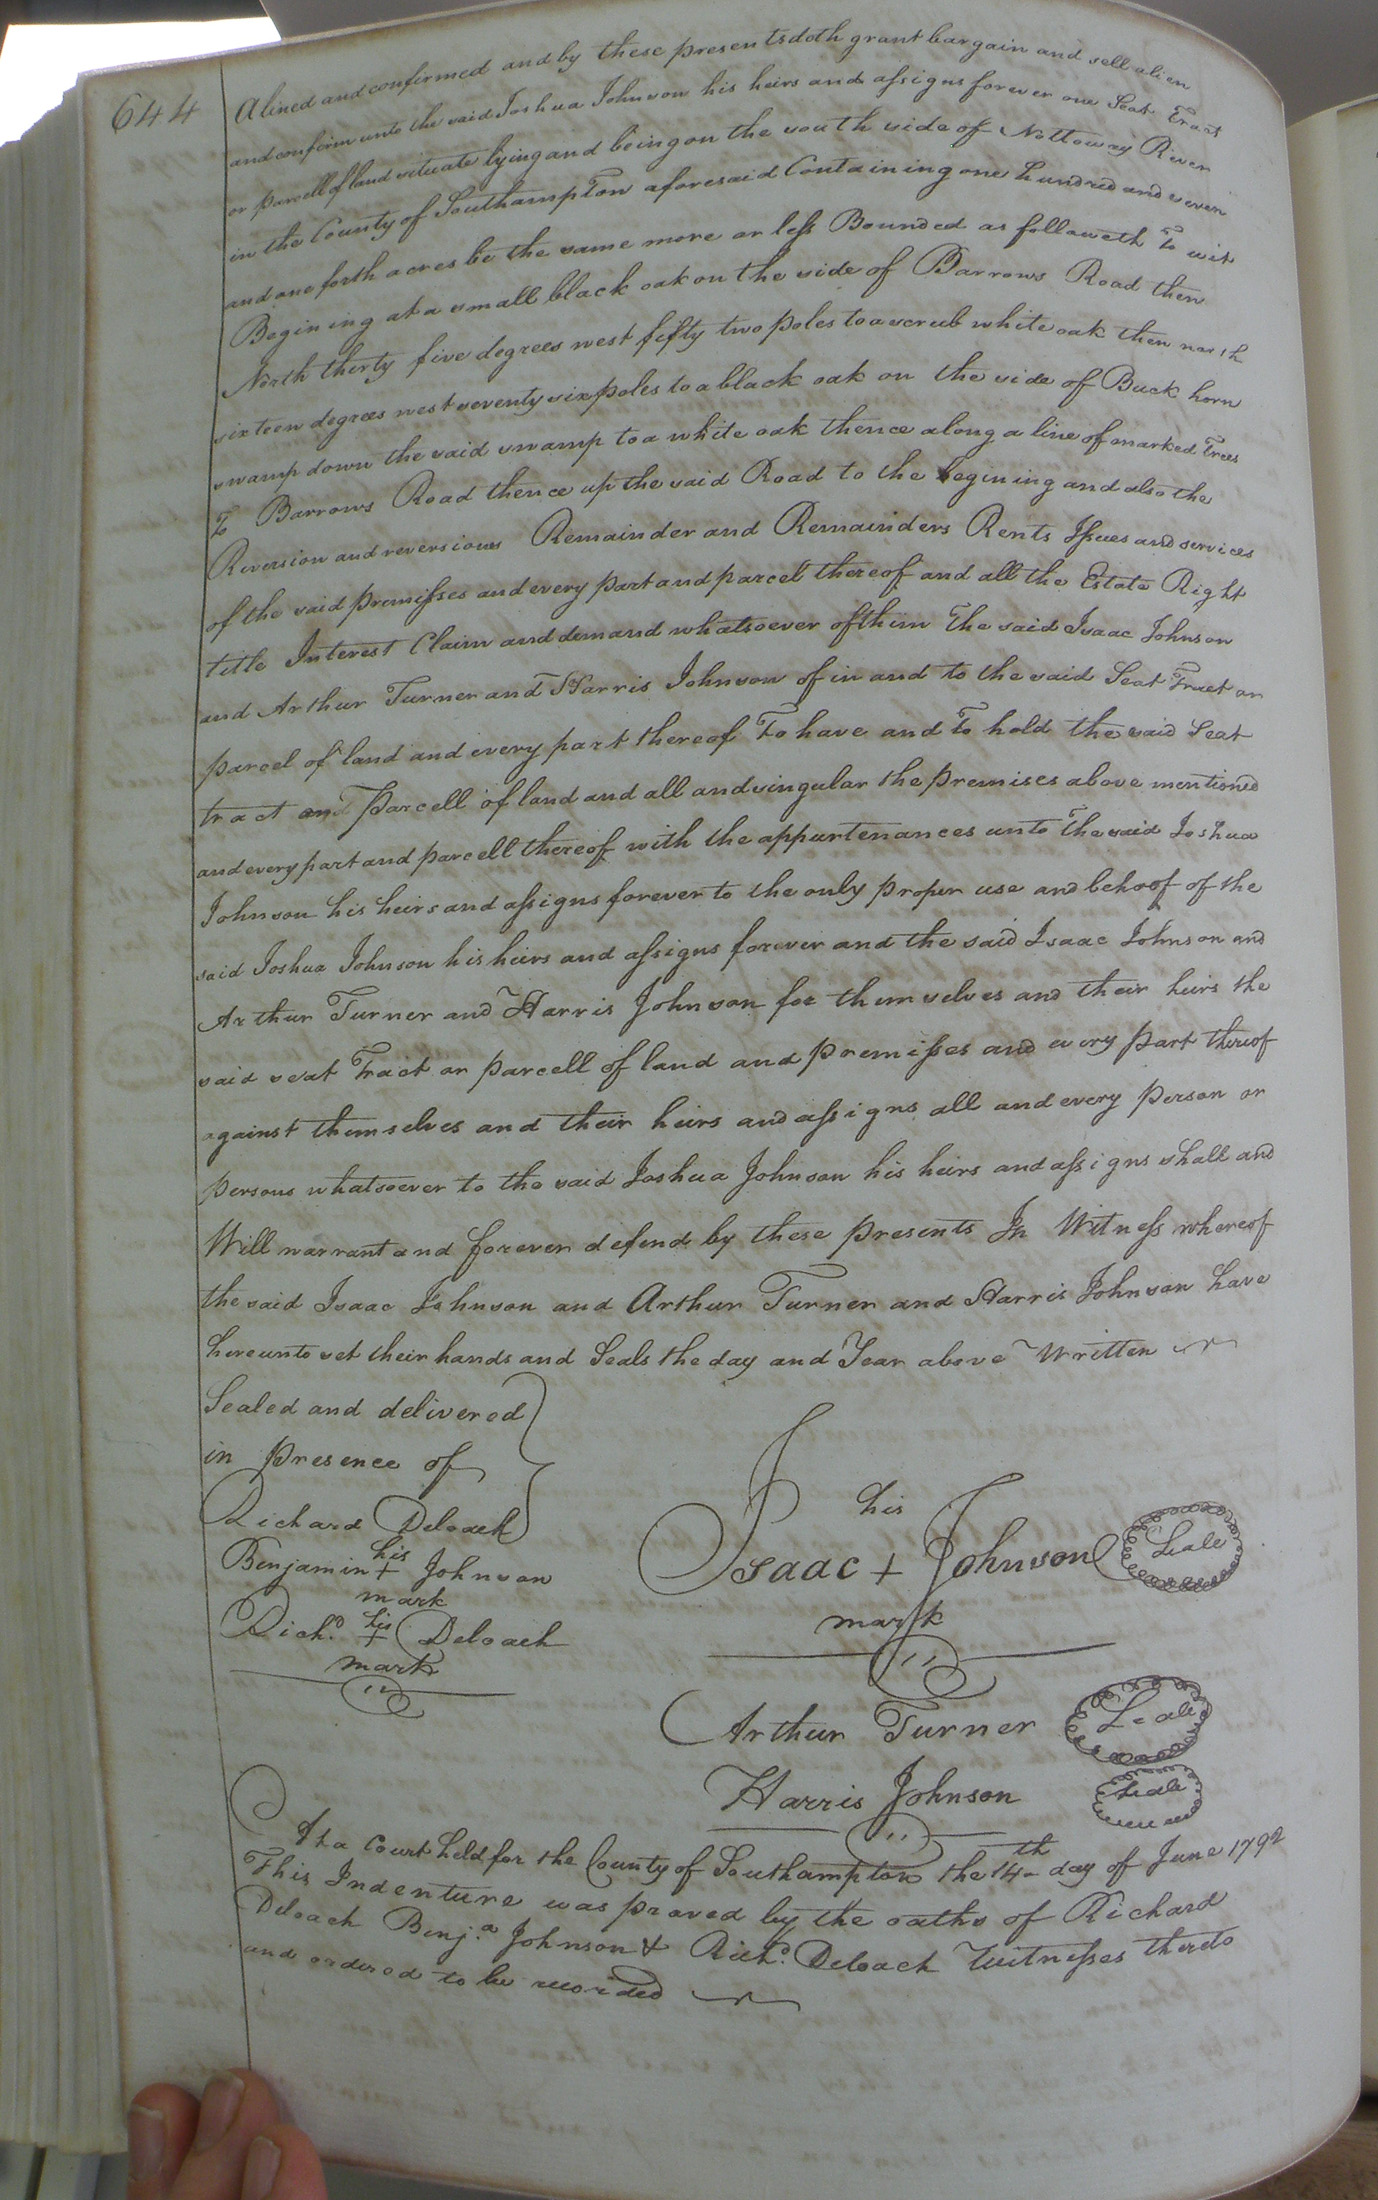 644
Alined and confirmed and by these presents doth grant bargain and sell alien
and confirm unto the said Joshua Johnson his heirs and assigns forever one Seat Tract
or parcell of land situate lying and being on the south side of Nottoway River
in the County of Southampton aforesaid Containing one hundred and seven
and one forth acres be the same more or less Bounded as followeth To wit
Begining at a small black oak on the side of Barrows Road then
North thirty five degrees west fifty two poles to a scrub white oak then north
sixteen degrees west seventy six poles to a black oak on the side of Buck horn
swamp down the said swamp to a white oak thence along a line of marked Trees
To Barrows Road thence up the said Road to the begining and also the
Reversion and reversions Remainder and Remainders Rents Issues and services
of the said premisses and every part and parcel thereof and all the Estate Right
title Interest Claim and demand whatsoever of them the said Isaac Johnson
and Arthur Turner and Harris Johnson of in and to the said Seat Tract or
parcel of land and every part thereof To have and To hold the said Seat
tract and Parcell of land and all and singular the premises above mentioned
and every part and parcell thereof with the appurtenances unto the said Joshua
Johnson his heirs and assigns forever to the only proper use and behoof of the
said Joshua Johnson his heirs and assigns forever and the said Isaac Johnson and
Arthur Turner and Harris Johnson for themselves and their heirs the
said seat Tract or parcell of land and premisses and every part thereof
against themselves and their heirs and assigns all and every person or
persons whatsoever to the said Joshua Johnson his heirs and assigns shall and
Will warrant and forever defend by these presents In Witness whereof
the said Isaac Johnson and Arthur Turner and Harris Johnson have
hereunto set their hands and Seals the day and Year above Written
Sealed and delivered
in presence of
Richard Deloach
Benjamin his + Johnson
mark
Richd. his + Deloach
mark
his
Isaac + Johnson Seale
mark
Arthur Turner Seale
Harris Johnson Seale
At a Court held for the County of Southampton the 14th day of June 1792
This Indenture was proved by the oaths of Richard
Deloach Benja. Johnson & Richd. Deloach Witnesses thereto
and ordered to be recorded